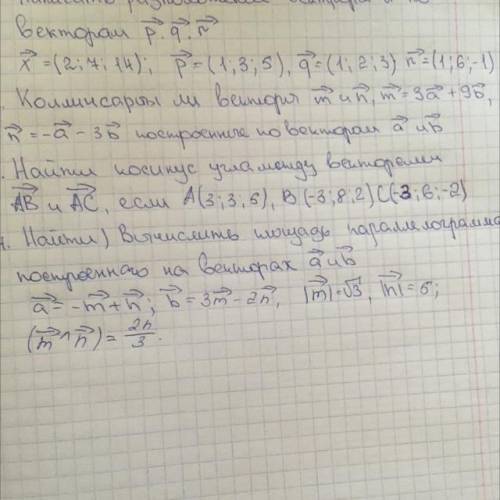 Написать разложение вектора x по
векторам p⃗. q⃗. n⃗
x⃗=(2;7;14); p⃗=(1;3;5), q⃗=(1;2;3) n⃗=(1;6;-1)
. Коллинеарны ли вектора m⃗ и n⃗, m⃗=3a⃗+9b⃗,
n⃗=-a⃗-3b⃗ построенные по векторам a⃗ и b⃗
. Найти косинус угла между векторами
AB⃗ и AC⃗, если A(3;3;5), B(-3;8;2) C(-3;6;-2)
4. Найти) Вычислить площадь параллелограмма
построенного на векторах a⃗ и b⃗
a⃗=-m⃗+n⃗; b⃗=3m⃗-2n⃗, |m⃗|=√3, |n⃗|=6;
(m⃗^n⃗)=2π/3.